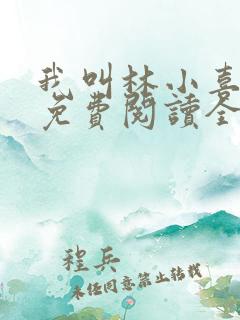 我叫林小喜
免費閱讀全
程兵
未經同意禁止轉載